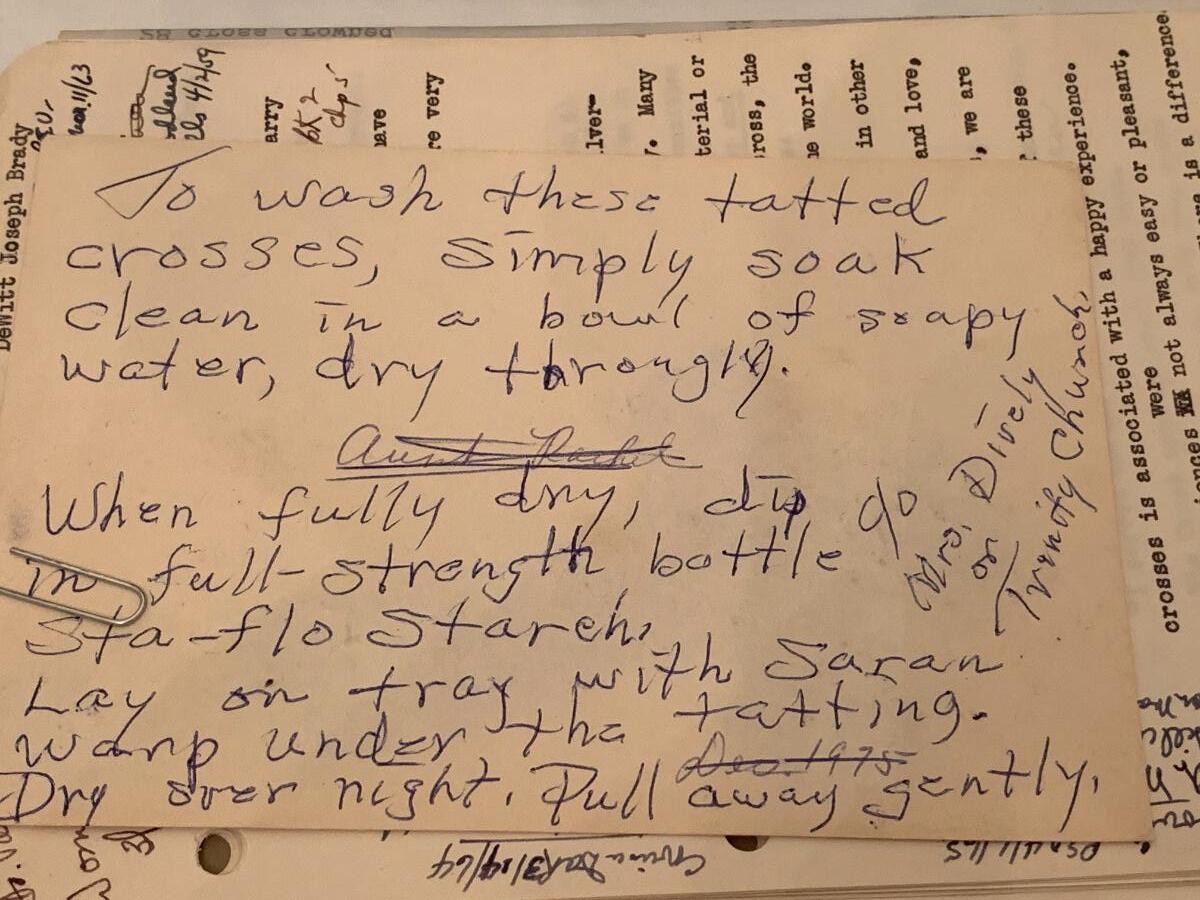 28 cross crowned
Dewitt Joseph Brady
Mar. 11/63
4/2/59
arry
BK 2
chp 5
have
re very
lver-
y. Many
terial or
ross, the
he world.
in other
and love,
, we are
these
crosses is associated with a happy experience.
were
not always easy or pleasant,
is a difference
To wash these tatted
crosses, simply soak
clean in a bowl of soapy
water, dry throngly.
Aunt Rachel
When fully dry, dip
in full-strength bottle
Sta-flo Starch.
Lay on tray with Saran
warp under the tatting.
Dec. 1975
Dry over night. Pull away gently.
Mrs. Dively
or
Trinity Church
3/14/64